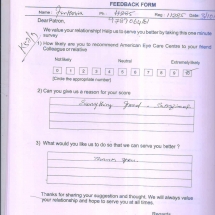 FEEDBACK FORM
Name : Reg : 11285
Dear Patron,
We value your relationship! Help us to serve you better by taking this one minute
survey
1) How likely are you to recommend American Eye Care Centre to your friend
Colleagues or relative
Not likely Neutral Extremely likely
0 1 2 3 4 5 6 7 8 9 10
(Circle the appropriate number)
2) Can you give us a reason for your score
Everything Good
3) What would you like us to do so that we can serve you better ?
Thanks for sharing your suggestion and thought. We will always value
your relationship and hope to serve you at all times.